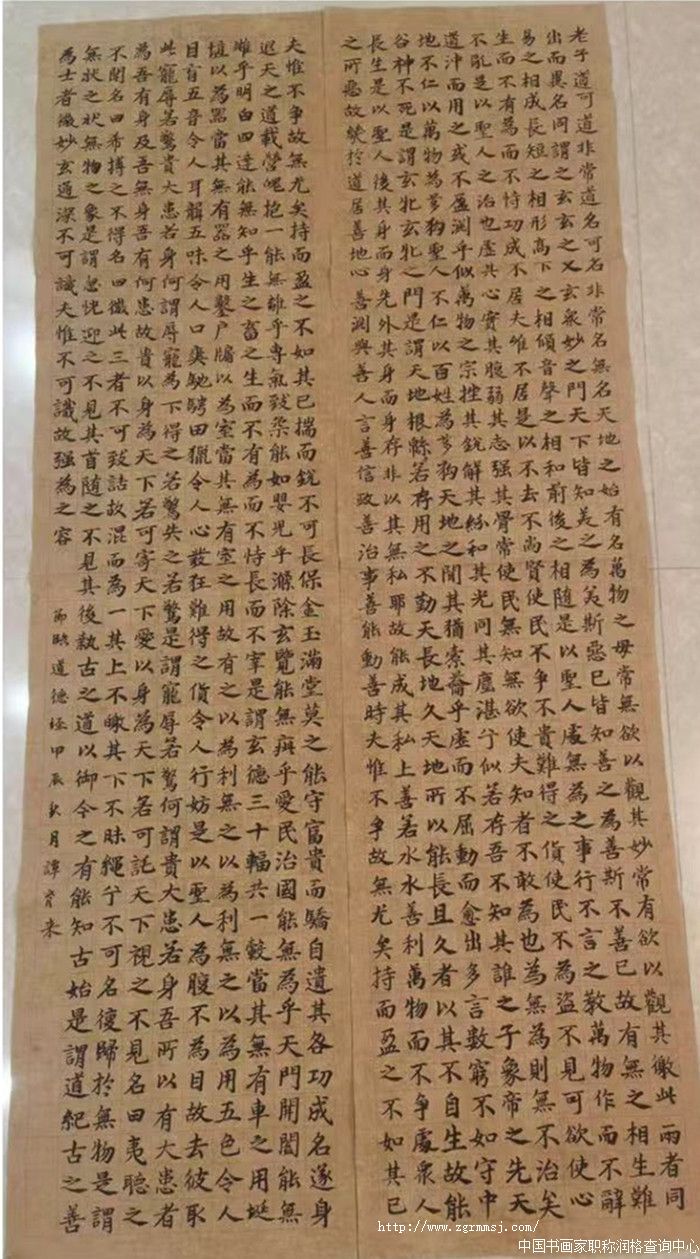 老子道可道非常道名可名非常名無名天地之始有名萬物之母常無欲以觀其妙常有欲以觀其徼此兩者同
出而異名同謂之玄玄之又玄眾妙之門天下皆知美之為美斯惡已皆知善之為善斯不善已故有無之相生難
易之相成長短之相形高下之相傾音聲之相和前後之相隨是以聖人處無為之事行不言之教萬物作而不辭
生而不有為而不恃功成不居夫惟不居是以不去不尚賢使民不爭不貴難得之貨使民不為盜不見可欲使心
不亂是以聖人之治也虛其心實其腹弱其志强其骨常使民無知無欲使夫知者不敢為也為無為則無不治矣
道沖而用之或不盈淵乎似萬物之宗挫其銳解其紛和其光同其塵湛兮似若存吾不知其誰之子象帝之先天
地不仁以萬物為芻狗聖人不仁以百姓為芻狗天地之間其猶橐籥乎虛而不屈動而愈出多言數窮不如守中
谷神不死是謂玄牝玄牝之門是謂天地根緜若存用之不勤天長地久天地所以能長且久者以其不自生故能
長生是以聖人後其身而身先外其身而身存非以其無私耶故能成其私上善若水水善利萬物而不爭處眾人
之所惡故幾於道居善地心善淵與善人言善信政善治事善能動善時夫惟不爭故無尤矣持而盈之不如其已
夫惟不爭故無尤矣持而盈之不如其已揣而銳不可長保金玉滿堂莫之能守富貴而驕自遺其各功成名遂身
退天之道載營魄抱一能無離乎專氣致柔能如嬰兒乎滌除玄覽能無疵乎愛民治國能無為乎天門開闔能無
雌乎明白四達能無知乎生之畜之生而不有為而不恃長而不宰是謂玄德三十輻共一轂當其無有車之用埏
埴以為器當其無有器之用鑿户牖以為室當其無有室之用故有之以為利無之以為利無之以為用五色令人
目盲五音令人耳聾五味令人口爽馳騁田獵令人心發狂難得之貨令人行妨是以聖人為腹不為目故去彼取
此寵辱若驚貴大患若身何謂辱寵為下得之若驚失之若驚是謂寵辱若驚何謂貴大患若身吾所以有大患者
為吾有身及吾無身吾有何患故貴以身為天下若可寄天下愛以身為天下若可託天下視之不見名曰夷聽之
不聞名曰希搏之不得名曰微此三者不可致詰故混而為一其上不皦其下不昧繩兮不可名復歸於無物是謂
無狀之狀無物之象是謂惚恍迎之不見其首隨之不見其後執古之道以御今之有能知古始是謂道紀古之善
為士者微妙玄通深不可識夫惟不可識故强為之容
節臨道德經甲辰秋月譚來
http://www.zgrmmsj.com/
中国书画家职称润格查询中心